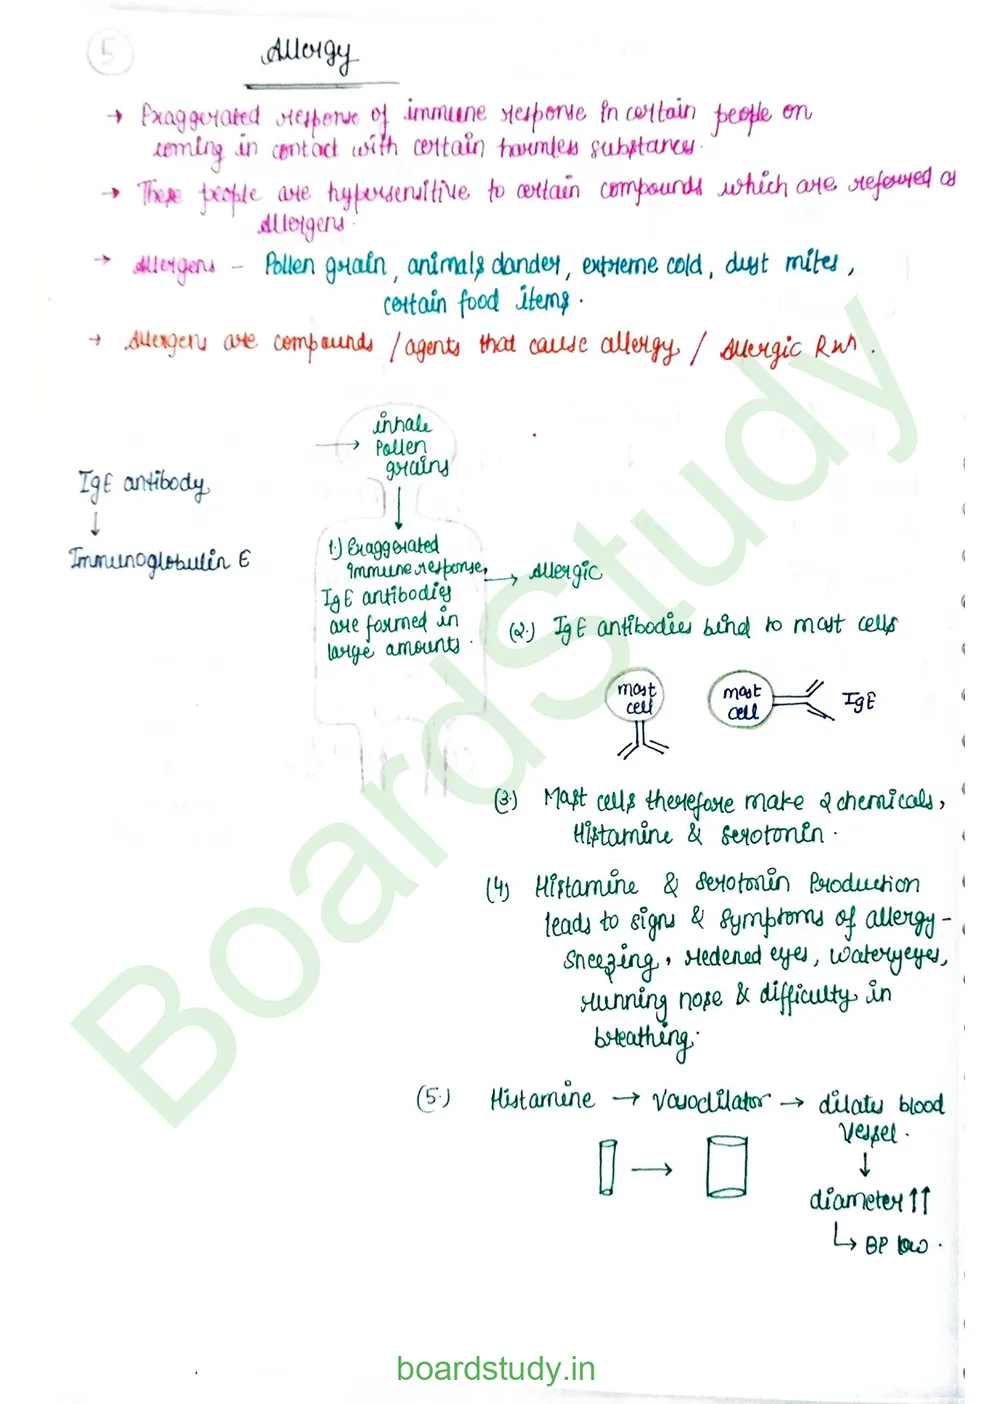 5
Allergy
→ Exaggerated response of immune response in certain people on
coming in contact with certain harmless substances.
→ These people are hypersensitive to certain compounds which are referred as
Allergens.
→ Allergens – Pollen grain, animals dander, extreme cold, dust mites,
certain food items.
→ Allergens are compounds / agents that cause allergy / Allergic Rxn.
→ inhale
Pollen
grains
IgE antibody
↓
Immunoglobulin E
↓
1.) Exaggerated
immune response,
IgE antibodies
are formed in
large amounts.
→ Allergic
(2.) IgE antibodies bind to mast cells
mast
cell
mast
cell
IgE
(3.) Mast cells therefore make 2 chemicals,
Histamine & Serotonin.
(4) Histamine & Serotonin Production
leads to signs & symptoms of allergy –
Sneezing, redened eyes, watery eyes,
running nose & difficulty in
breathing.
(5.) Histamine → Vasodilator → dilates blood
Vessel.
→
↓
diameter ↑↑
↳ BP low.
BoardStudy
boardstudy.in